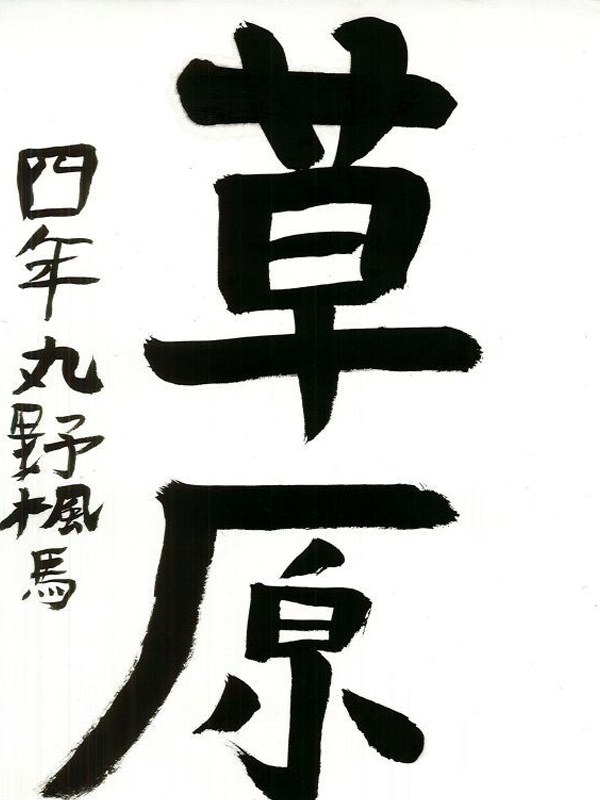 草原
四年丸野楓馬